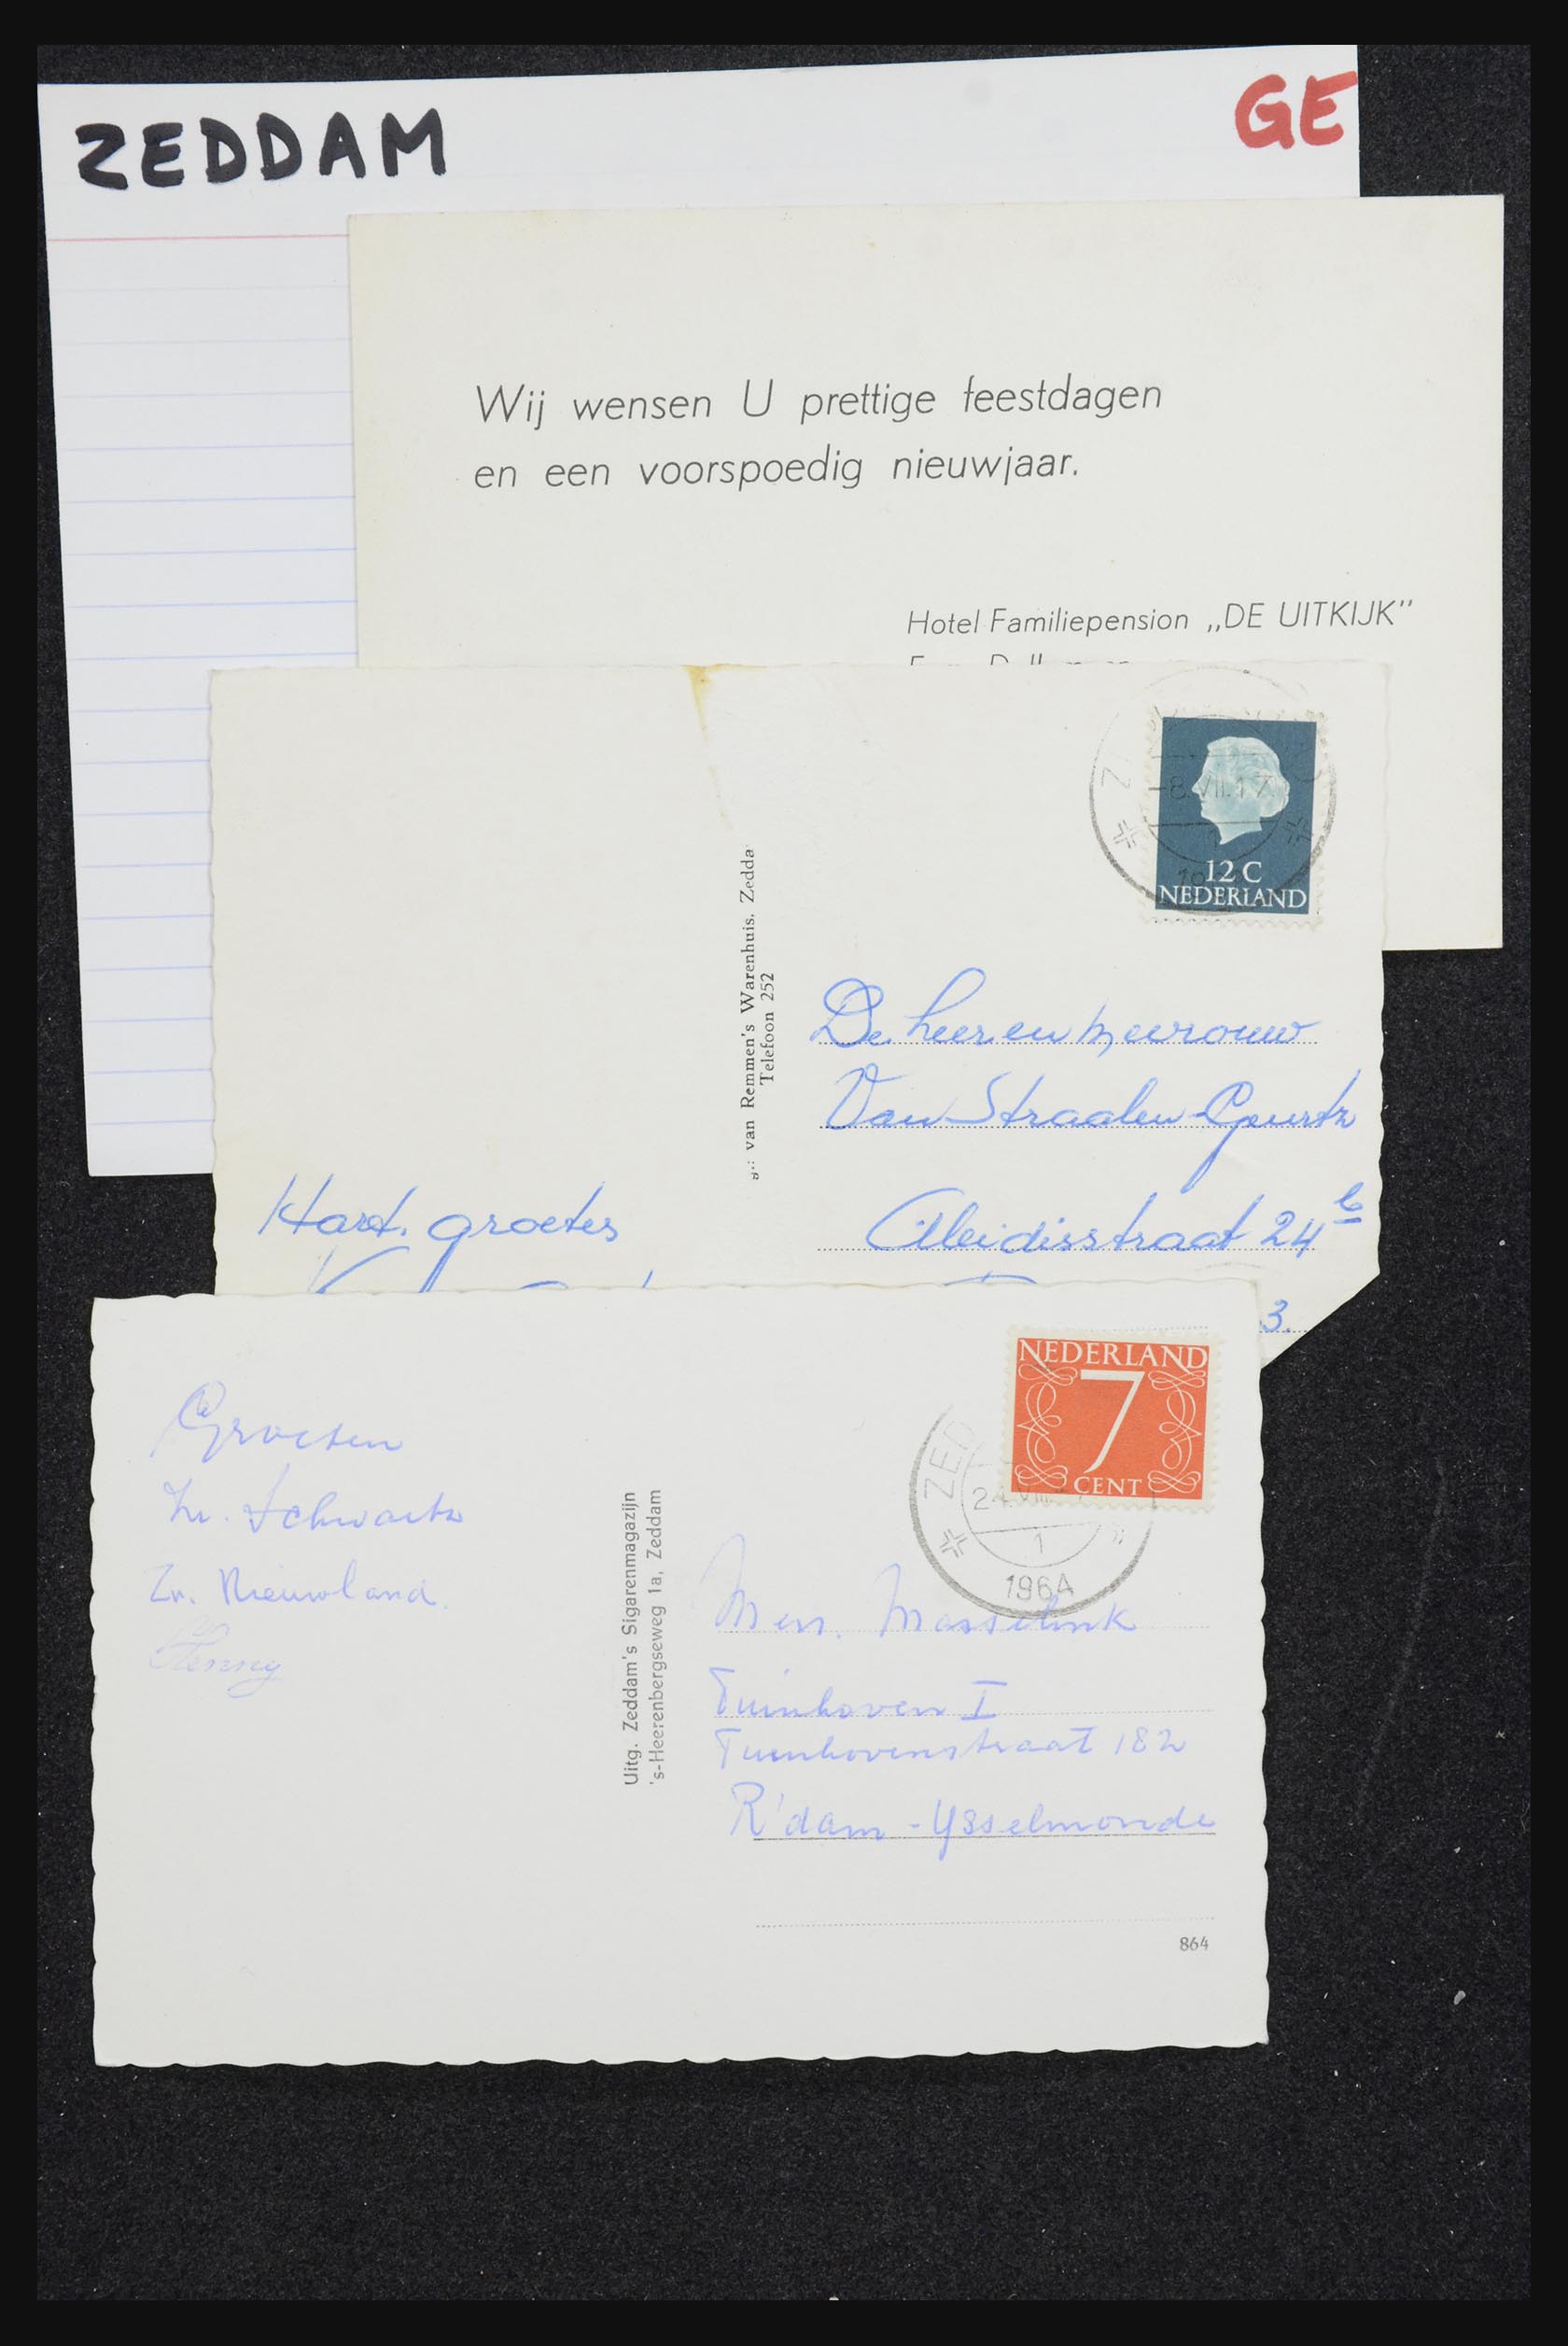 ZEDDAM
GE
Wij wensen U prettige feestdagen
en een voorspoedig nieuwjaar.
Hotel Familiepension „DE UITKIJK"
-8.VII.17
12 C
NEDERLAND
van Remmen's Warenhuis. Zedda
Telefoon 252
De heer en Mevrouw
Van Straalen-Geurtz
Aleidisstraat 24 b
3.
Hart. groetes
NEDERLAND
7
CENT
ZED
24.VIII
1
1964
Groeten
Zr. Schwartz
Zr. Nieuwland.
Henny
Uitg. Zeddam's Sigarenmagazijn
's-Heerenbergseweg 1a, Zeddam
Mevr. Masselink
Tuinhoven I
Tuinhovenstraat 182
R'dam - IJsselmonde
864